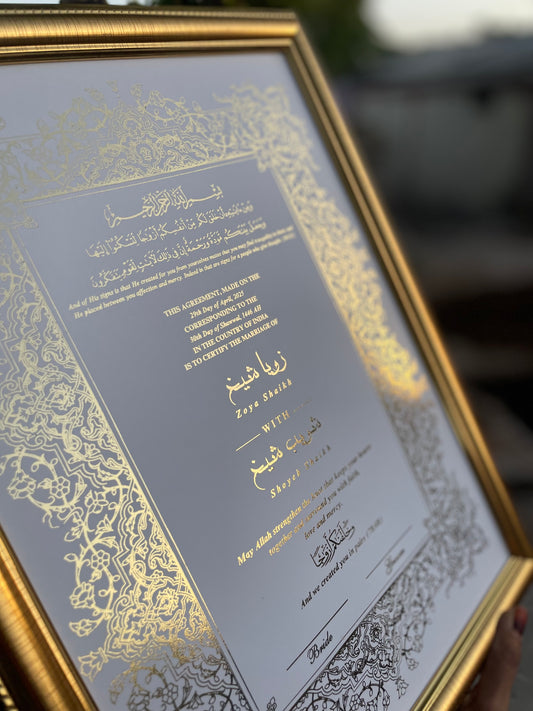 بسم الله الرحمن الرحيم
وَمِنْ آيَاتِهِ أَنْ خَلَقَ لَكُم مِّنْ أَنفُسِكُمْ أَزْوَاجًا لِّتَسْكُنُوا إِلَيْهَا
وَجَعَلَ بَيْنَكُم مَّوَدَّةً وَرَحْمَةً إِنَّ فِي ذَٰلِكَ لَآيَاتٍ لِّقَوْمٍ يَتَفَكَّرُونَ
And of His signs is that He created for you from yourselves mates that you may find tranquility in them; and
He placed between you affection and mercy. Indeed in that are signs for a people who give thought.
THIS AGREEMENT, MADE ON THE
29th Day of April, 2025
CORRESPONDING TO THE
30th Day of Shawwal, 1446 AH
IN THE COUNTRY OF INDIA
IS TO CERTIFY THE MARRIAGE OF
زويا شيخ
Zoya Shaikh
WITH
شعيب شيخ
Shoyeb Shaikh
May Allah strengthen the knot that keeps your hearts
together and surround you with faith,
love and mercy.
وخلقنكم أزوجا
And we created you in pairs (78:08)
Bride
Groom